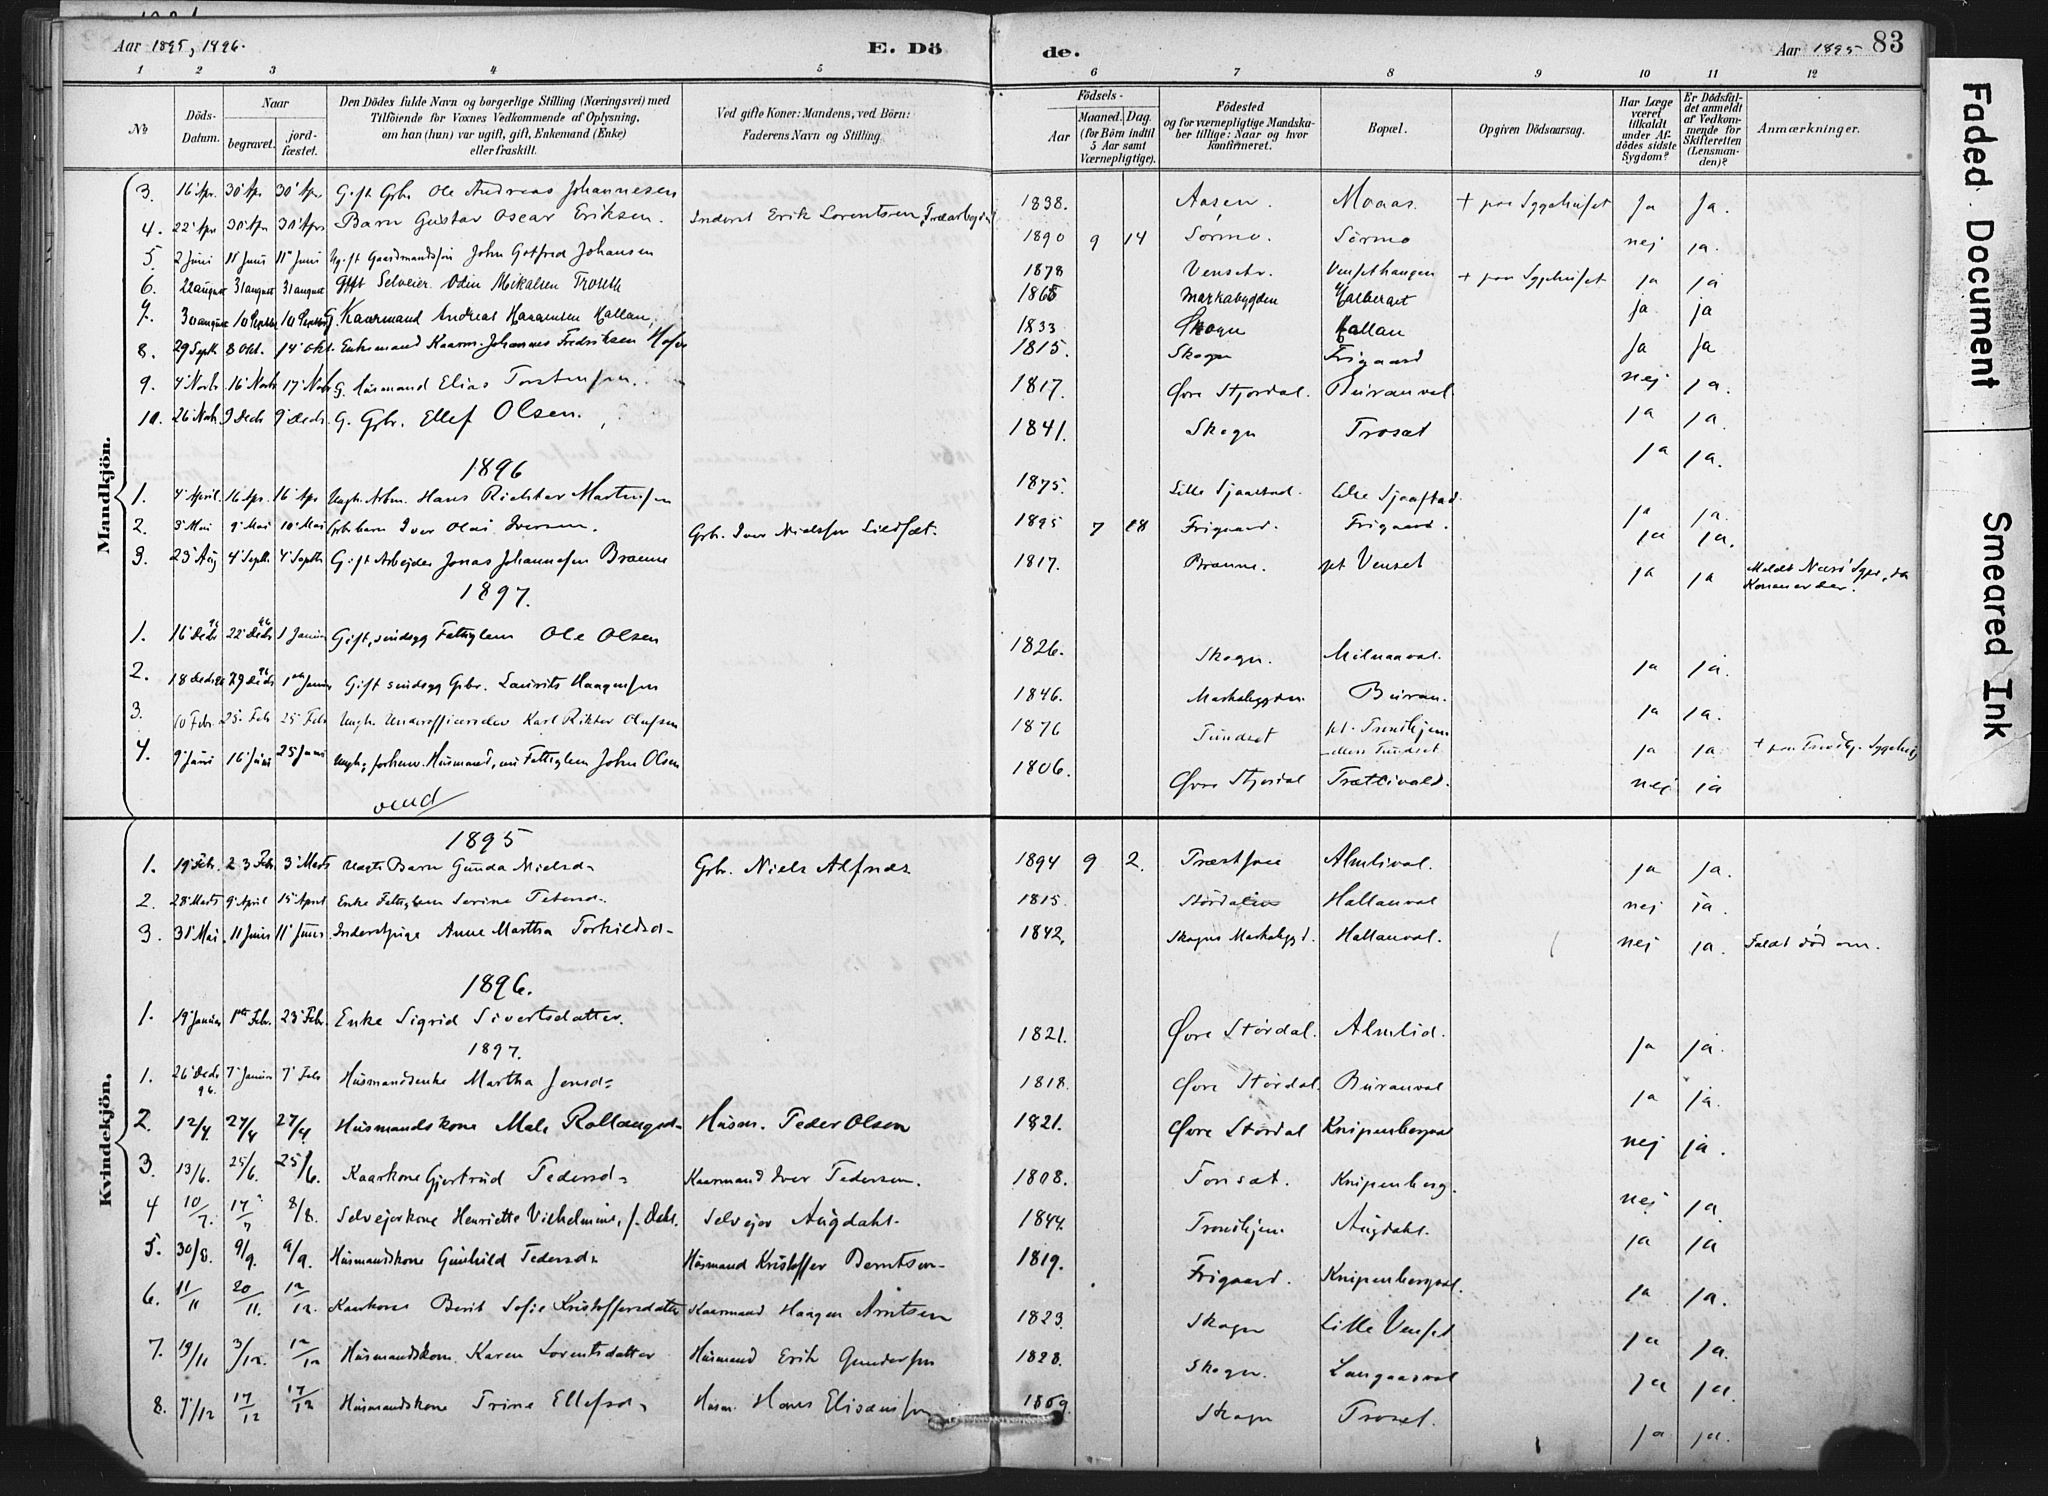 Aar 1895, 1896. E. Dö de. Aar 1895 83
1 2 3 4 5 6 7 8 9 10 11 12
No
Döds-Datum.
Naar
begravet.
jordfæstet.
Den Dödes fulde Navn og borgerlige Stilling (Næringsvei) med
Tilföiende for Voxnes Vedkommende af Oplysning,
om han (hun) var ugift, gift, Enkemand (Enke)
eller fraskilt.
Ved gifte Koner: Mandens, ved Börn:
Faderens Navn og Stilling.
Födsels-
Aar
Maaned. Dag.
(for Börn indtil
5 Aar samt
Værnepligtige).
Födested
og for værnepligtige Mandska-
ber tillige: Naar og hvor
konfirmeret.
Bopæl.
Opgiven Dödsaarsag.
Har Læge
været
tilkaldt
under Af-
dödes sidste
Sygdom?
Er Dödsfal-
det anmeldt
af Vedkom-
mende for
Skifteretten
(Lensman-
den)?
Anmærkninger.
Mandkjön.
3. 16 Apr 30 Apr 30 Apr Gift Gbr. Ole Andreas Johannesen 1838. Aasen. Moaas. + paa Sygehuset ja ja.
4. 22 Apr 30 Apr 30 Apr Barn Gustav Oscar Eriksen. Inderst Erik Lorentsen 1890 9 14 Sørmo. Sørmo nej ja.
5. 2 Juni 11 Juni 11 Juni Ug.ft Gaardmandssøn John Gotfred Johansen 1878 Venset. Vensethaugen + paa Sygehuset ja ja
6. 22 august 31 august 31 august Gift Selveier Odin Mikalsen Troseth 1865 Markabygden ja ja
7. 30 august 10 Septbr 10 Septbr G. Kaarmand Andreas Haagensen Hallan. 1833 Skogn Hallan ja ja
8. 29 Septb 8 Okt. 14 Okt. Enkemand Kaarm. Johannes Fredriksen 1815. Skogn Frigaard nej ja.
9. 4 Novbr 16 Novbr 17 Novbr G. Husmand Elias Torstensen. 1817. Øvre Stjørdal. Buranval ja ja.
10. 26 Novbr 9 Decbr 9 Decbr. G. Gbr. Ellef Olsen. 1841. Skogn Troset ja ja.
1896
1. 4 April 16 Apr. 16 Apr Ungk. Arbm. Hans Richter Martinsen 1875. Lille Tjaastad. Lille Tjaastad ja ja.
2. 3 Mai 9 Mai 10 Mai Gbr barn Iver Olai Iversen. Gbr. Iver Nielsen 1895 7 28 Frigaard. Frigaard. ja ja.
3. 23 Aug 4 Septb 4 Septb Gift Arbejder Jonas Johannesen Brænne 1817. Brænne. pt Venset ja ja
1897.
1. 16 Decbr 96 22 Decbr 96 1 Januar Gift, sindsyg Fattiglem Ole Olsen 1826. Skogn. ja ja.
2. 18 Decbr 96 29 Decbr 96 1 Januar Gift sindsyg Gbr. Laurits Haagensen 1846. Markabygden Buran. ja ja.
3. 10 Febr. 25 Feb 25 Feb Ungk. Underofficerselev Karl Rikter Olufsen 1876 Tündset pt. Trondhjem
ellers Tündset ja ja. + paa Trondhj. Sygehus
4. 9 Juni 16 Juni 25 Juni Ungk, forhenv. Husmand, nu Fattiglem John Olsen 1806. Øvre Stjørdal nej ja
vend
Kvindekjön.
1895
1. 19 Febr. 23 Feb. 3 Marts Uægte Barn Gunda Nielsd. Gbr. Niels Alfnes 1894 9 2. Almlival. ja ja.
2. 28 Marts 9 April 15 April Enke Fattiglem Serine Petersd. 1815. Stördalen Hallanval nej ja.
3. 31 Mai 11 Juni 11 Juni Inderstpige Anne Martha Torkildsd. 1842, Skogns Markabygd. Hallanval. nej ja. Faldt död om.
1896.
1. 19 Januar 1ste Febr. 23 Febr. Enke Sigrid Sivertsdatter. 1821. Øvre Stördal. Almlid. ja ja.
1897.
1. 26 Decbr 96. 7 Januar 7 Feb Husmandsenke Martha Jonsd. 1818. Øvre Stördal. Buranval ja ja.
2. 12/4. 27/4 27/4. Husmandskone Mali Rollaugsd. Husm. Peder Olsen 1821. Øvre Stördal Knipenbergval nej ja.
3. 13/6. 25/6. 25/6. Kaarkone Gjertrud Pedersd. Kaarmand Iver Pedersen. 1808. Knipenberg. nej ja
4 10/7. 17/7 8/8. Selvejerkone Henriette Vilhelmine, f. Selvejer Augdahl. 1844. Trondhjem Augdahl. ja ja
5. 30/8. 9/9. 9/9. Husmandskone Gunhild Pedersd. Husmand Kristoffer Berntsen 1819. Frigaard. Knipenbergval. ja ja.
6. 11/11 20/11. 12/12. Kaarkone Berit Sofie Kristoffersdatter Kaarmand Haagen Arntsen 1823. Skogn Lille Venset ja ja.
7. 19/11 3/12. 12/12 Husmandskone Karen Lorentsdatter Husmand Erik Gundersen 1828. Skogn. Langaasval ja ja.
8. 7/12 17/12 17/12 Husmandskone Trine Ellefsd. Husm. Hans Eliseussen 1869. Skogn Troset. ja ja.
Faded Document
Smeared Ink